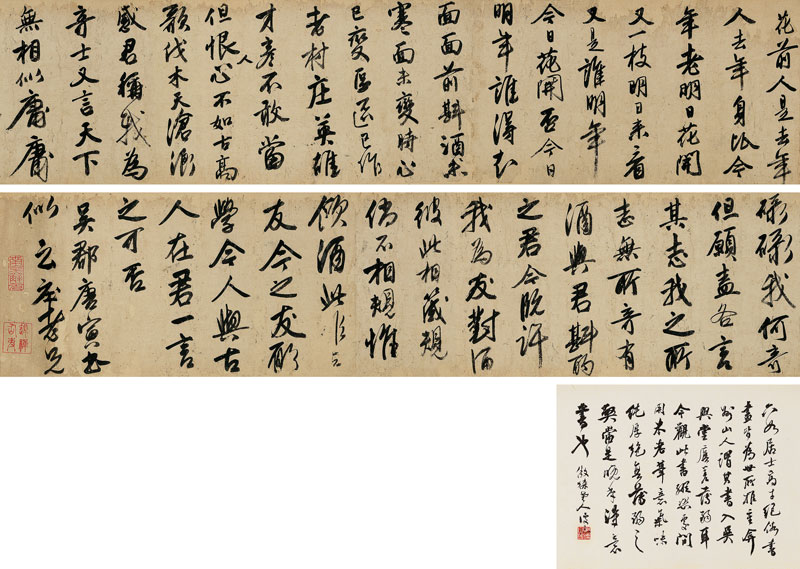 花前人是去年
人去年身比今
年老明日花開
又一枝明日來看
又是誰明年
今日花開否今日
明年誰得知
面面前斟酒未
寒面未變時心
已變區區已作
老村庄英雄
才彥不敢當
但恨人心不如古高
歌伐木天滄浪
感君稱我為
奇士又言天下
無相似庸庸
碌碌我何奇
但願盡各言
其志我之所
志無所奇有
酒與君斟酌
之君今既許
我為友對酒
彼此相箴規
倘不相規惟
飲酒此
友今之友
學今人與古
人在君一言
之可否
吳郡唐寅書
似云舉老兄
六如居士高才絕倫書
畫皆為世所推重弇
州山人謂其書入吳
興堂廡差薄弱耳
今觀此書縱
米老筆意氣味
純厚絕無薄弱之
當是晚年得意
書也